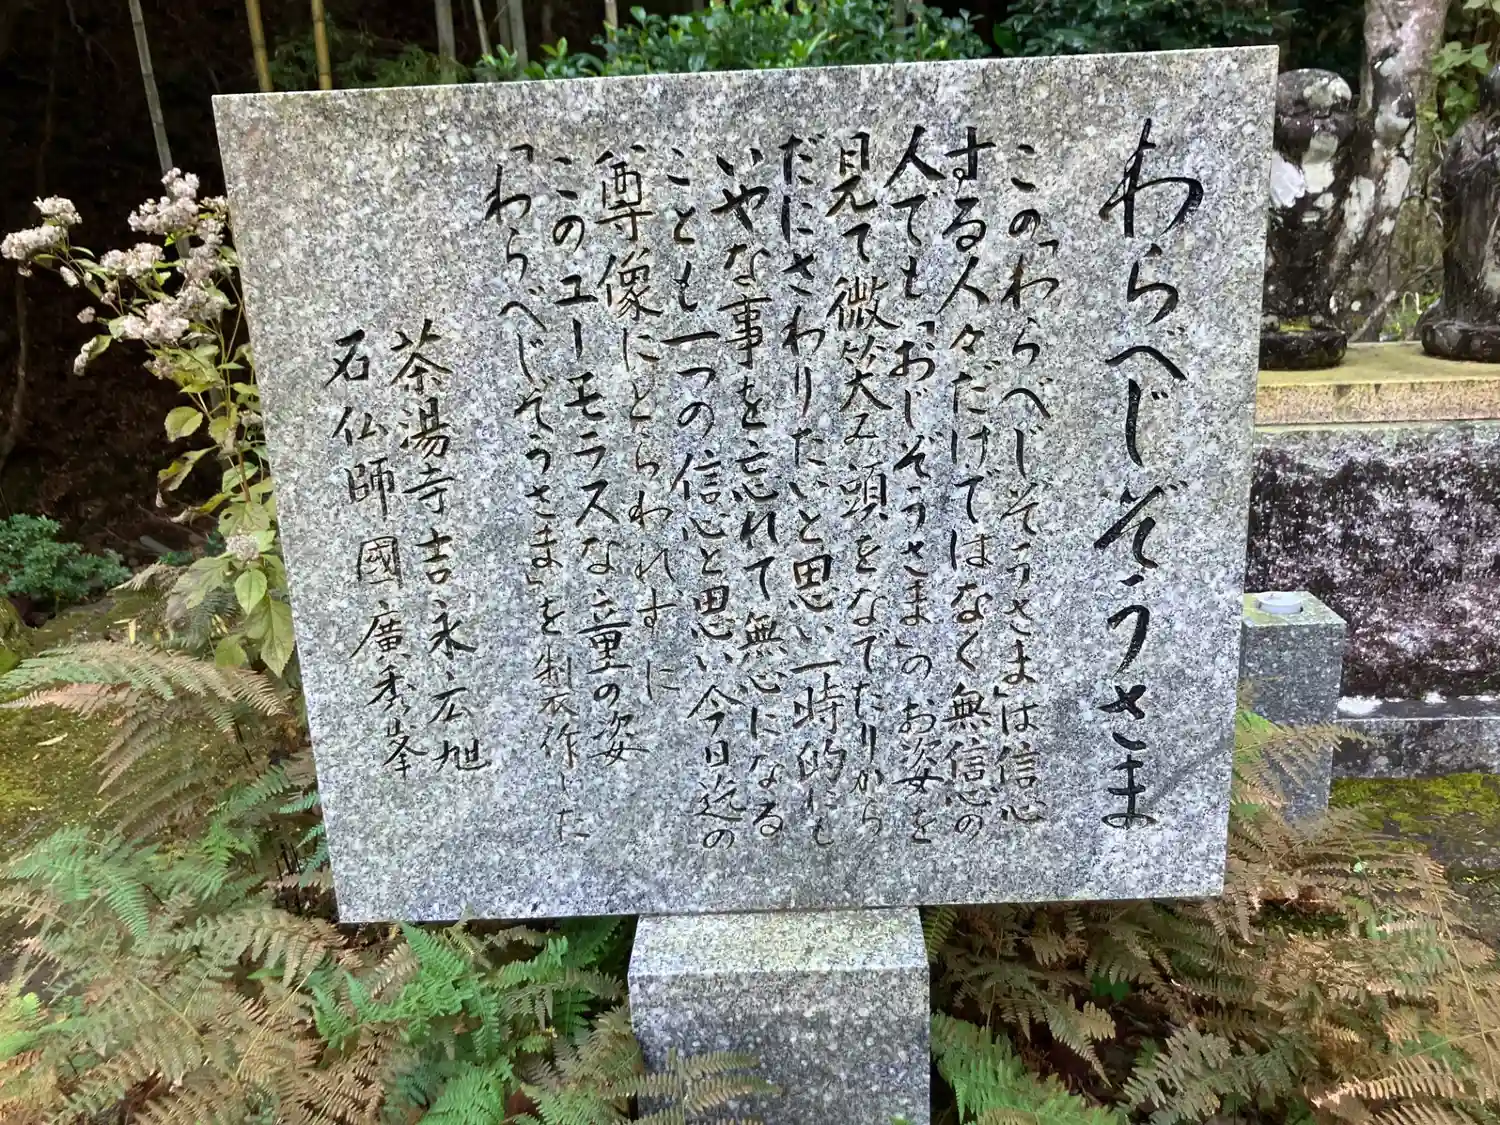 わらべじぞうさま
この「わらべじぞうさま」は信心
する人々だけではなく無信心の
人でも「おじぞうさま」のお姿を
見て微笑み頭をなでたりから
だにさわりたいと思い一時的にも
いやな事を忘れて無心になる
ことも一つの信心と思い今日迄の
尊像にとらわれずに
このユーモラスな童の姿
「わらべじぞうさま」を製作した
茶湯寺吉永広旭
石仏師國廣秀峯